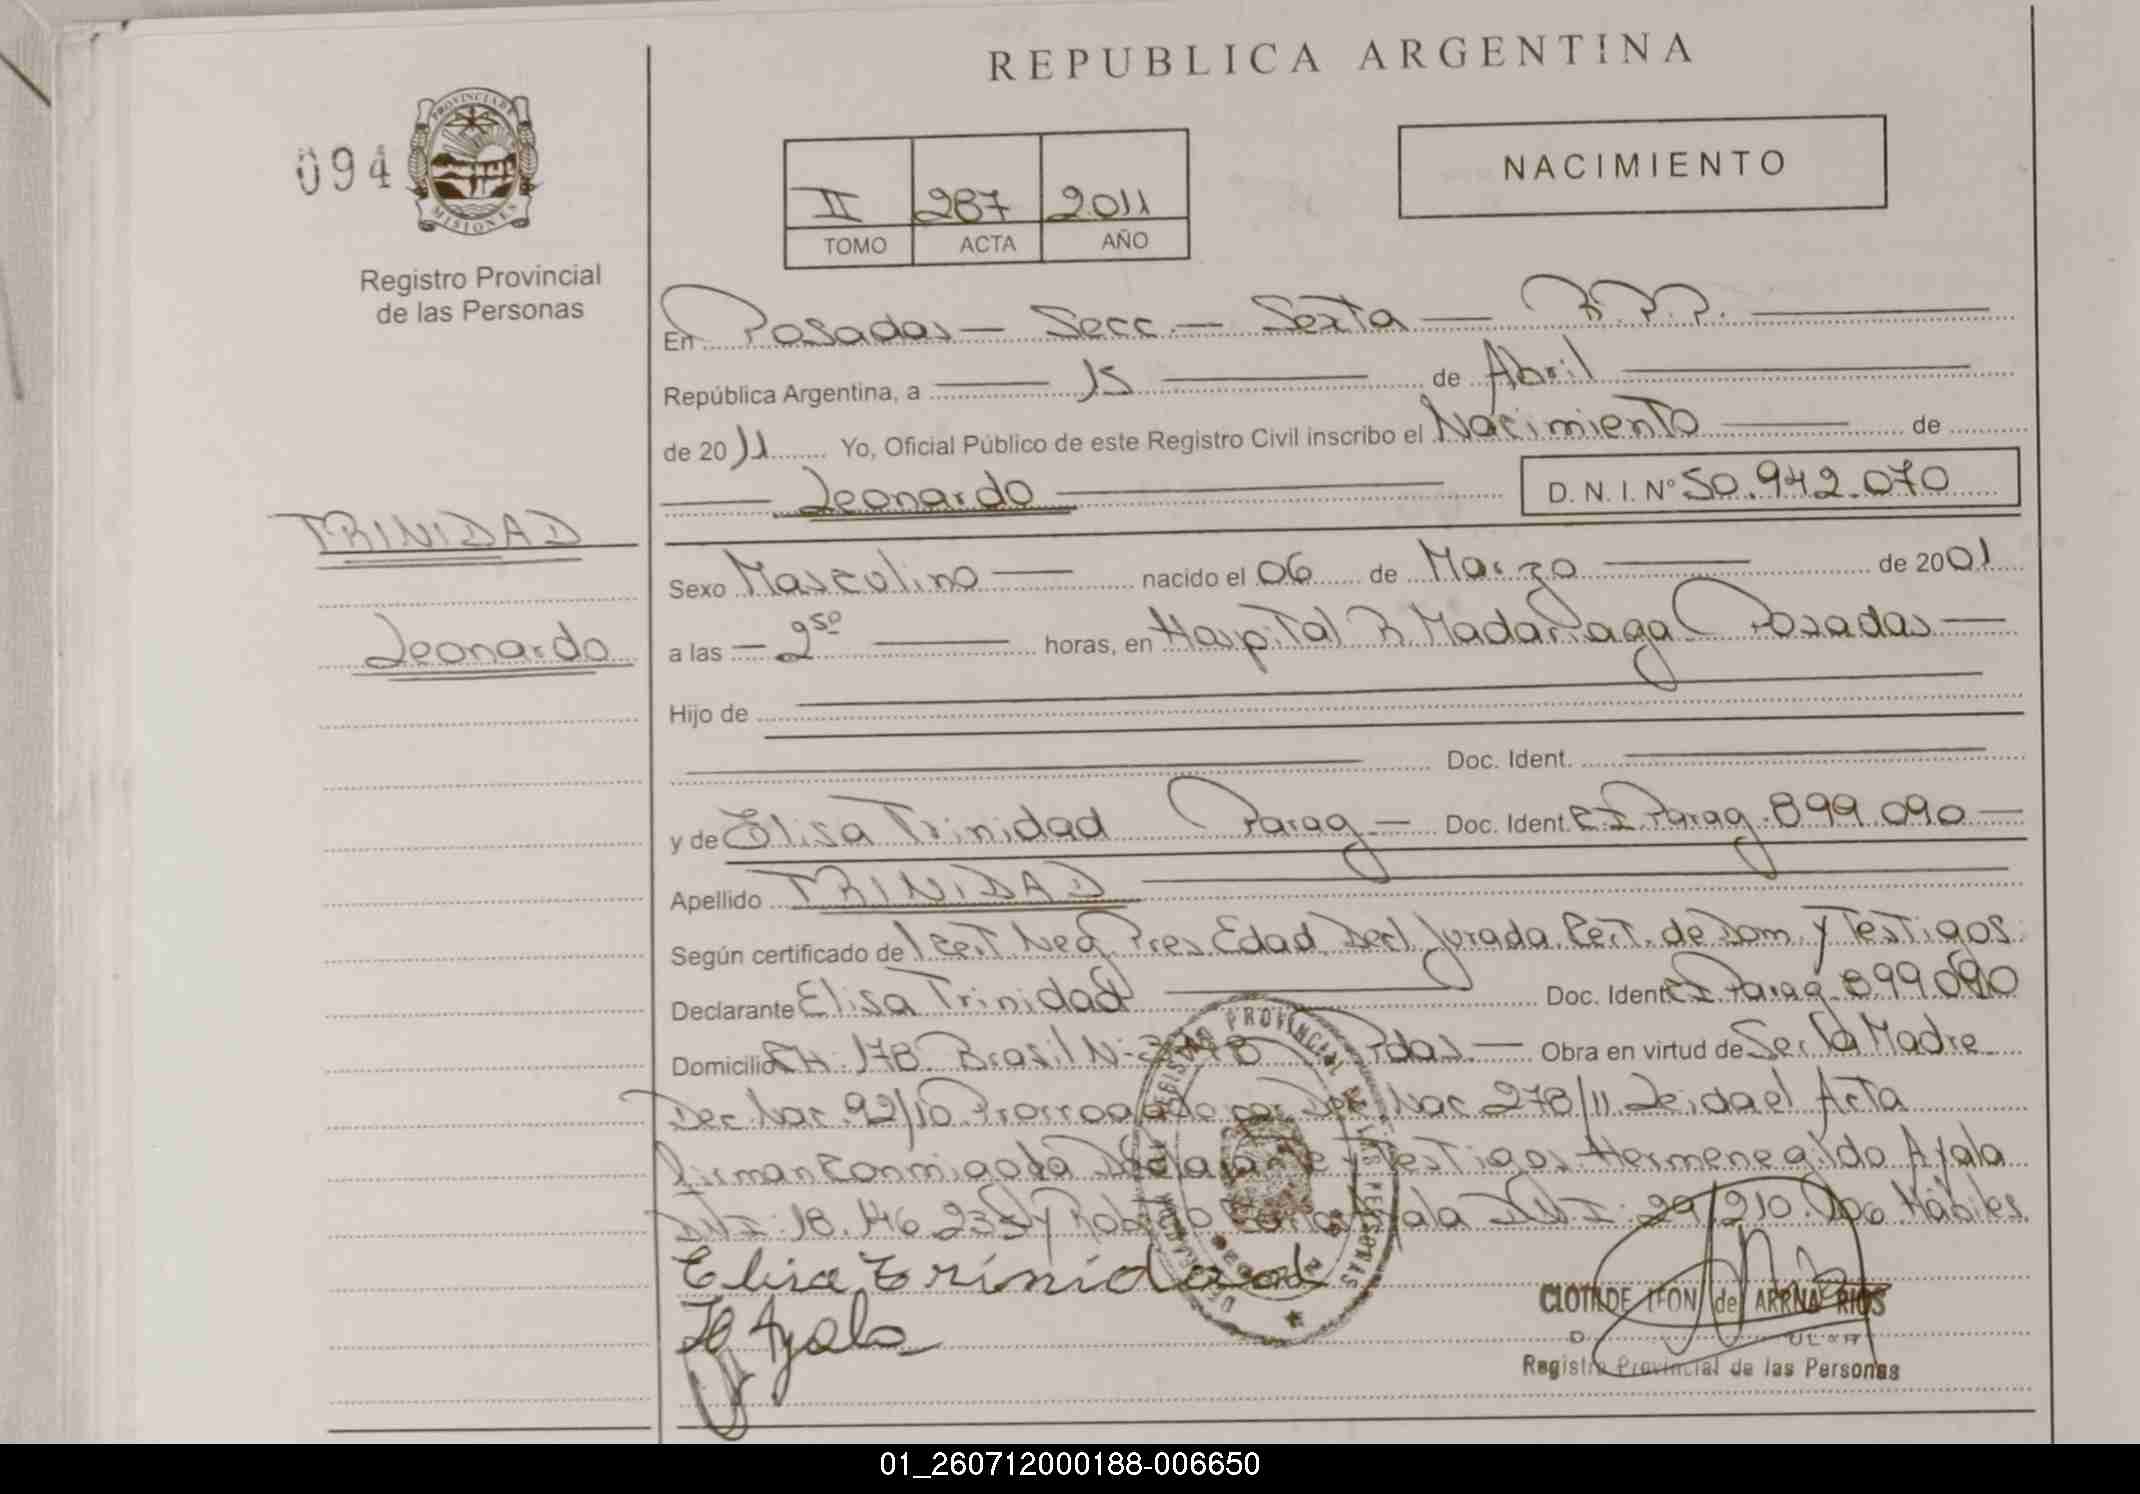 REPUBLICA ARGENTINA
094
PROVINCIA DE
MISIONES
Registro Provincial
de las Personas
II 287 2011
TOMO ACTA AÑO
NACIMIENTO
En Posadas — Secc — Sexta — R.P.P.
República Argentina, a 15 de Abril
de 2011 Yo, Oficial Público de este Registro Civil inscribo el Nacimiento de
Leonardo D. N. I. Nº 50.942.070
TRINIDAD
Leonardo
Sexo Masculino nacido el 06 de Marzo de 2001
a las — 2 50 horas, en Hospital R Madariaga Posadas —
Hijo de
Doc. Ident.
y de Elisa Trinidad Parag — Doc. Ident. CI Parag. 899.090 —
Apellido TRINIDAD
Según certificado de 1 Cert. Neg. Pres. Edad Decl. Jurada Cert. de Dom. y Testigos.
Declarante Elisa Trinidad Doc. Ident. CI Parag 899.090
Domicilio CH: 178. Brasil N: Pdas. — Obra en virtud de Ser la Madre
Dec. Nac. 92/10 Prorrogado por Dec. Nac 278/11 Leida el Acta
firman conmigo la Declarante y Testigos Hermenegildo Ayala
DNI: 18.146.233 y Ayala DNI: Hábiles.
Elisa Trinidad
H Ayala
REGISTRO PROVINCIAL DE LAS PERSONAS
CLOTILDE de RIOS
Registro Provincial de las Personas
01_260712000188-006650